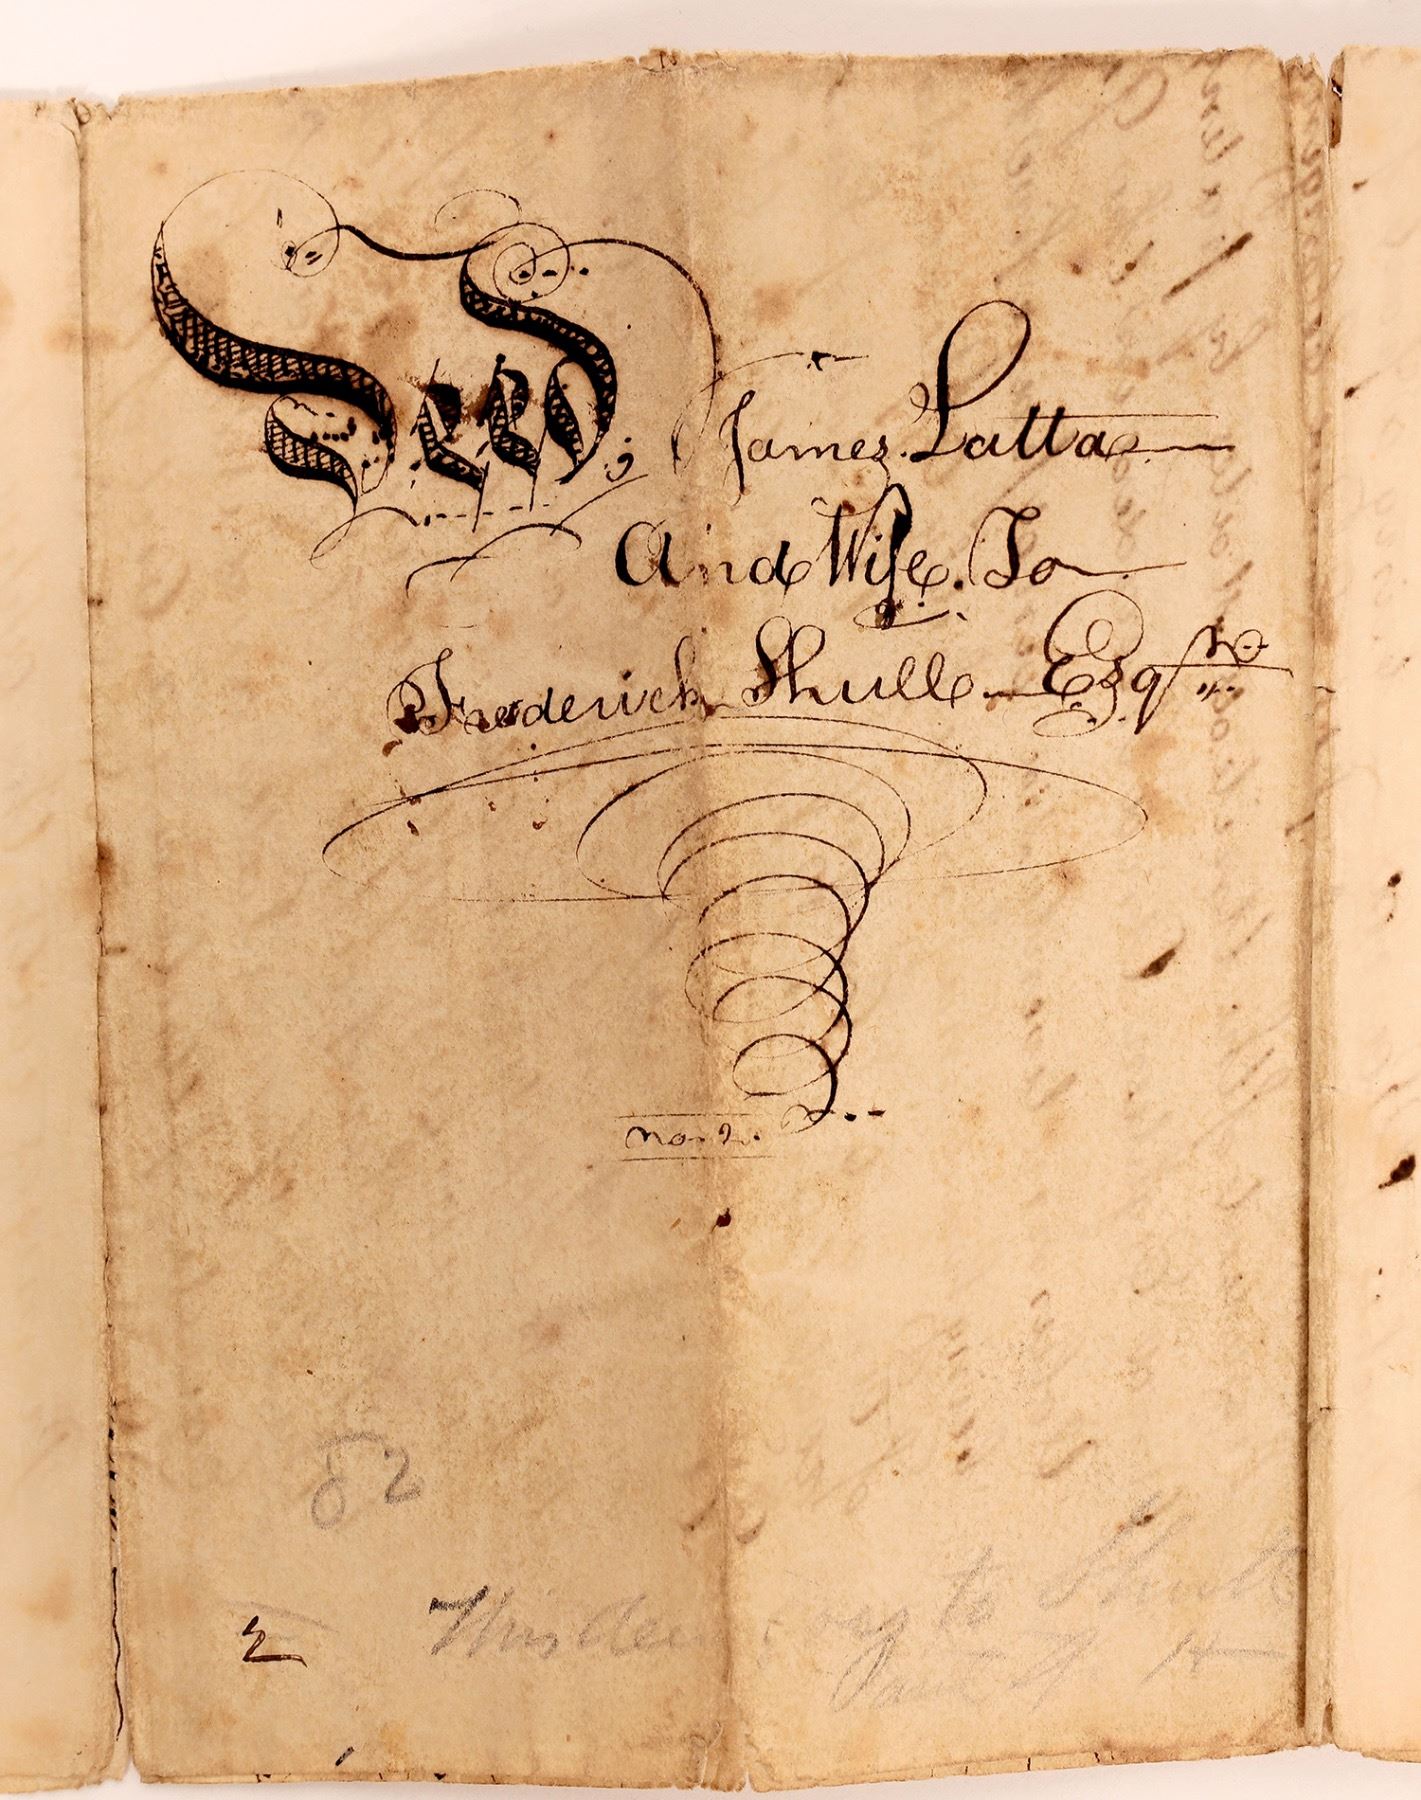 Deed,
James Latta
And Wife. To
Frederick Shull Esqr
No. 2.
82
2
This to Shull